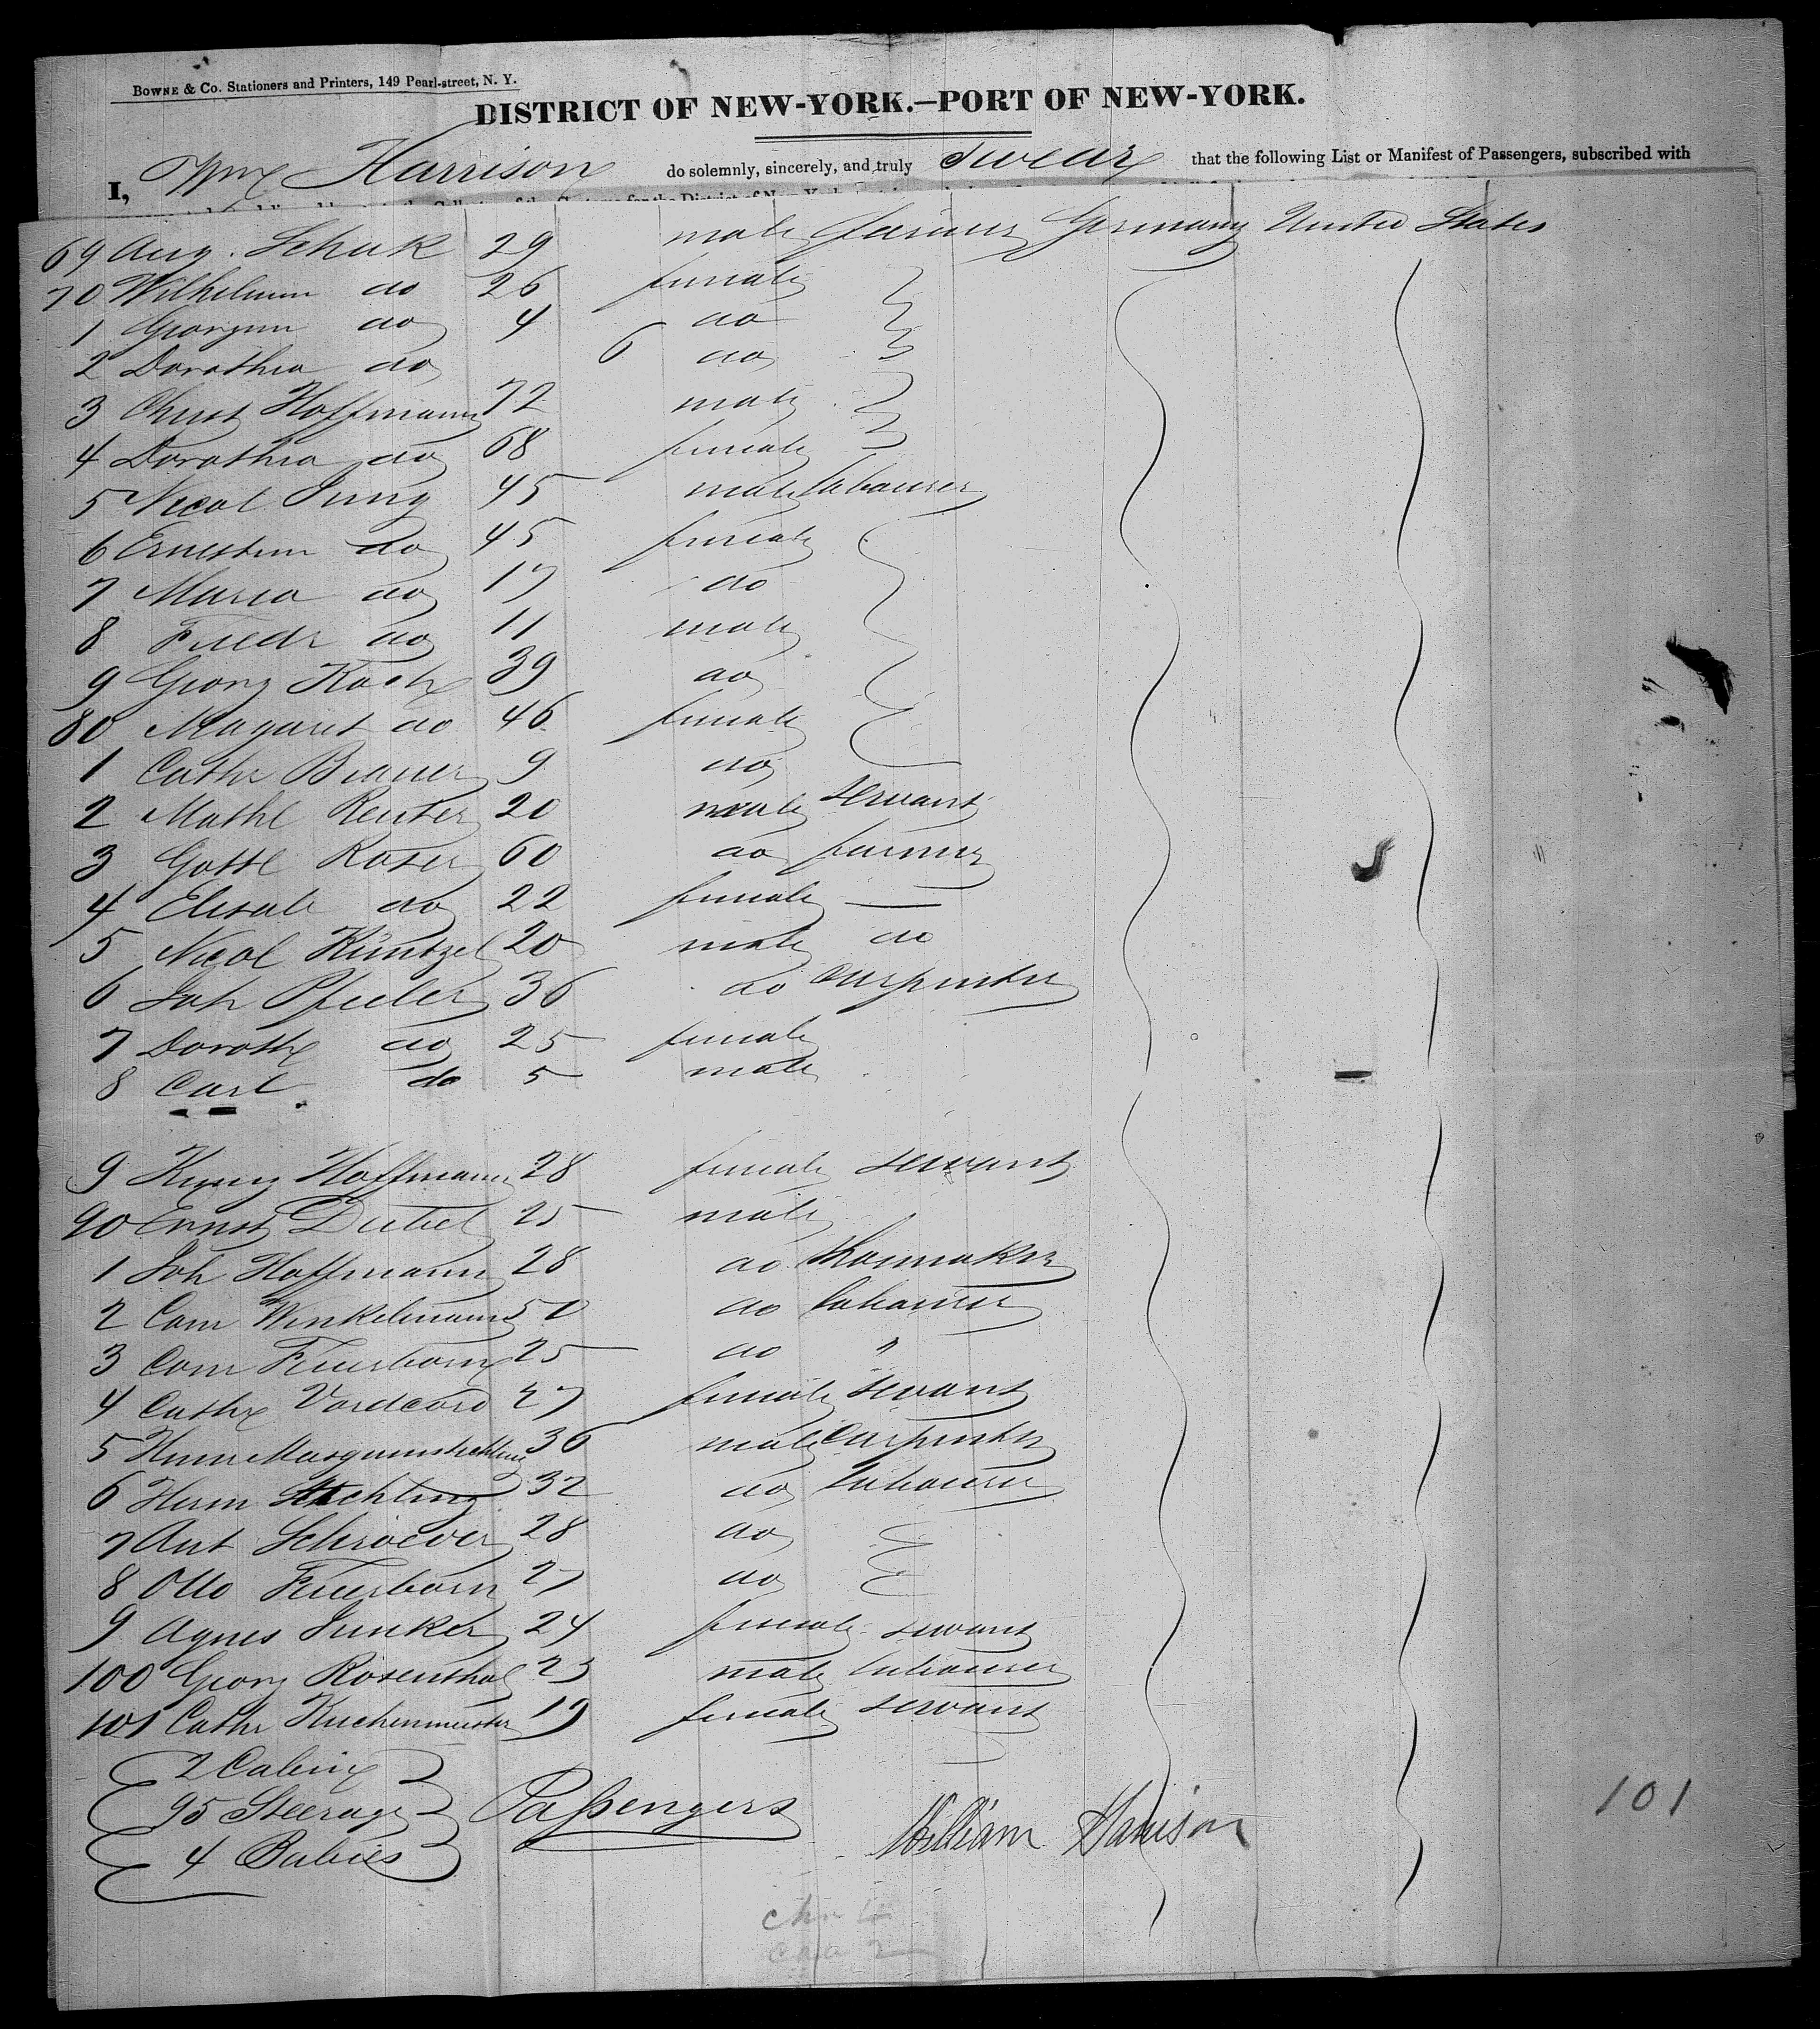 BOWNE & Co. Stationers and Printers, 149 Pearl-street, N. Y.
DISTRICT OF NEW-YORK.—PORT OF NEW-YORK.
I, Wm Harrison do solemnly, sincerely, and truly Swear that the following List or Manifest of Passengers, subscribed with
69 Aug. Schak 29 male farmer Germany United States
70 Wilhelmin do 26 female
1 Georgin do 4 do
2 Dorothea do 6 do
3 Christ Hoffmann 72 male
4 Dorothea do 68 female
5 Nicol Jung 45 male labourer
6 Ernestin do 45 female
7 Maria do 17 do
8 Friedr do 11 male
9 Georg Koch 39 do
80 Magaret do 46 female
1 Cathr 9 do
2 Mathl Reuter 20 male servant
3 Gottl Roser 60 do farmer
4 Elisab do 22 female —
5 Nicol Küntzel 20 male do
6 Joh Pfeiler 36 do carpenter
7 Doroth do 25 female
8 Carl do 5 male
9 Hoffmann 28 female servant
90 Ernst 25 male
1 Joh Hoffmann 28 do shoemaker
2 Winkelmann 50 do labourer
3 Feuerborn 25 do "
4 Cathr 27 female servant
5 36 male carpenter
6 Herm Stechling 32 do labourer
7 Ant Schroeder 28 do
8 Otto Feuerborn 27 do
9 Agnes Junker 24 female servant
100 Georg Rosenthal 23 male labourer
101 Cathr Kuchenmeister 19 female servant
2 Cabin
95 Steerage Passengers
4 Babies
William Harrison
101